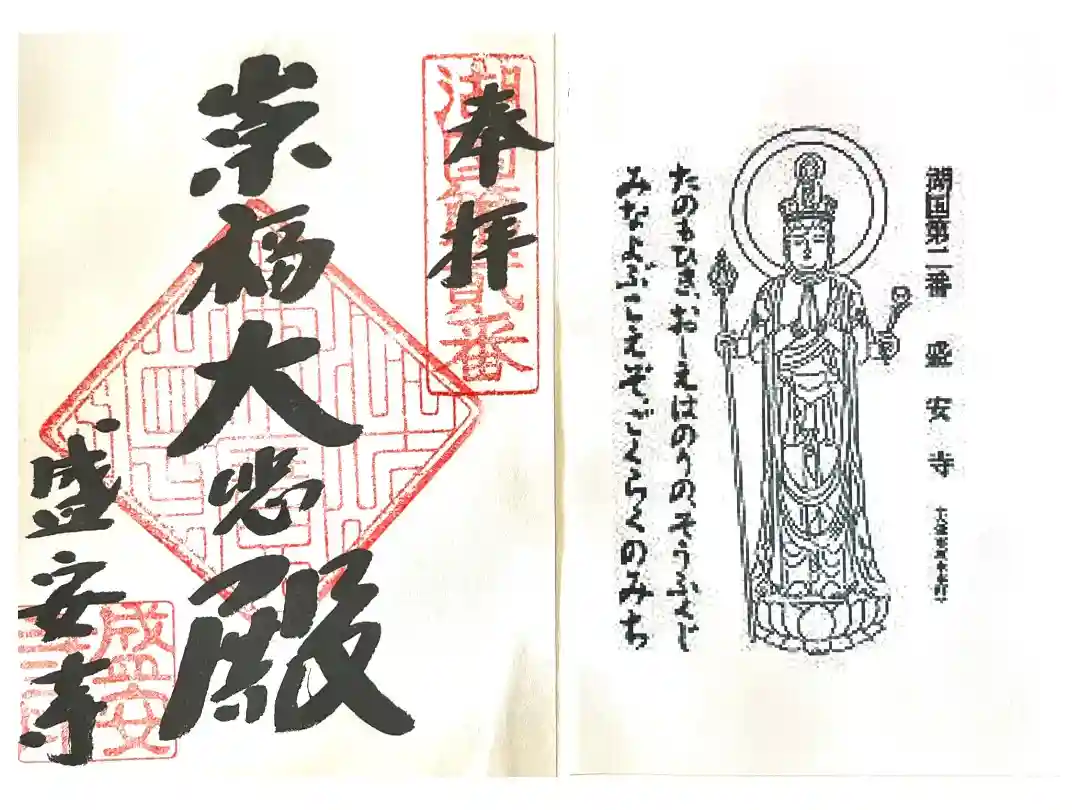 奉拝
湖国第貳番
崇福大悲殿
盛安寺
盛安
湖国第二番 盛安寺
たのもひき、おしえはのりのそうふくじ
みなよぶこえぞごくらくのみち